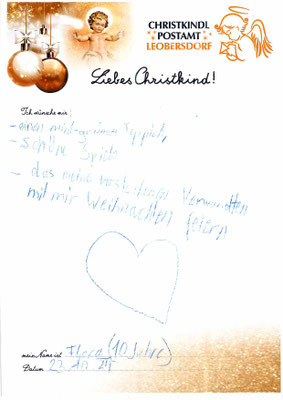 CHRISTKINDL
POSTAMT
LEOBERSDORF
Liebes Christkind!
Ich wünsche mir:
- einen mint-grünen
- schöne Spiele
- das meine Verwandten
mit mir Weihnachten feiern
mein Name ist (10 Jahre)
Datum 23.10.